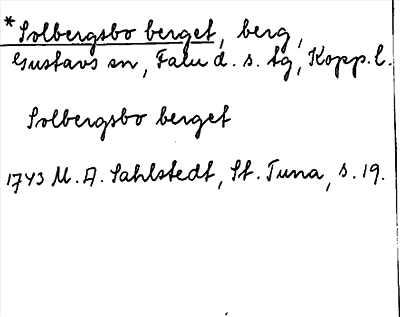 *Solbergsbo berget, berg,
Gustavs sn, Falu d. s. tg, Kopp. l.
Solbergsbo berget
1743 M. A. Sahlstedt, St. Tuna, s. 19.